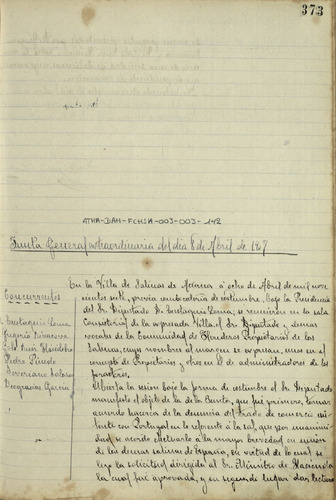 373
ATHA-DAH-FCHSA-003-003-142
Junta General extraordinaria del dia 8 de Abril de 1907
En la Villa de Salinas de Añana á ocho de Abril de mil nove
cientos siete, previa convocatoria de costumbre, bajo la Presidencia
Concurrentes
del Sr. Diputado D. Eustaquio
se reunieron en la sala
Consistorial de la expresada Villa el Sr. Diputado y demas
vocales de la Comunidad de Herederos Propietarios de las
Salinas, cuyos nombres al margen se expresan, unos en el
concepto de Propietarios y otros en el de administradores de los
forasteros.
Eustaquio
Gregorio
Pedro Pinedo
Severiano
Deogracias Garcia
Abierta la sesion bajo la forma de costumbre el Sr. Diputado
manifestó el objeto de la de Junta, que fué primero, tomar
acuerdo acerca de la denuncia del tratado de comercio exis
tente con Portugal en lo referente á la sal, que por unanimi
dad se acordó efectuarlo á la mayor brevedad en union
de las demas salinas de España, en virtud de lo cual se
leyó la solicitud dirigida al Sr. Ministro de Hacienda
la cual fué aprovada, y en segundo lugar dar lectura